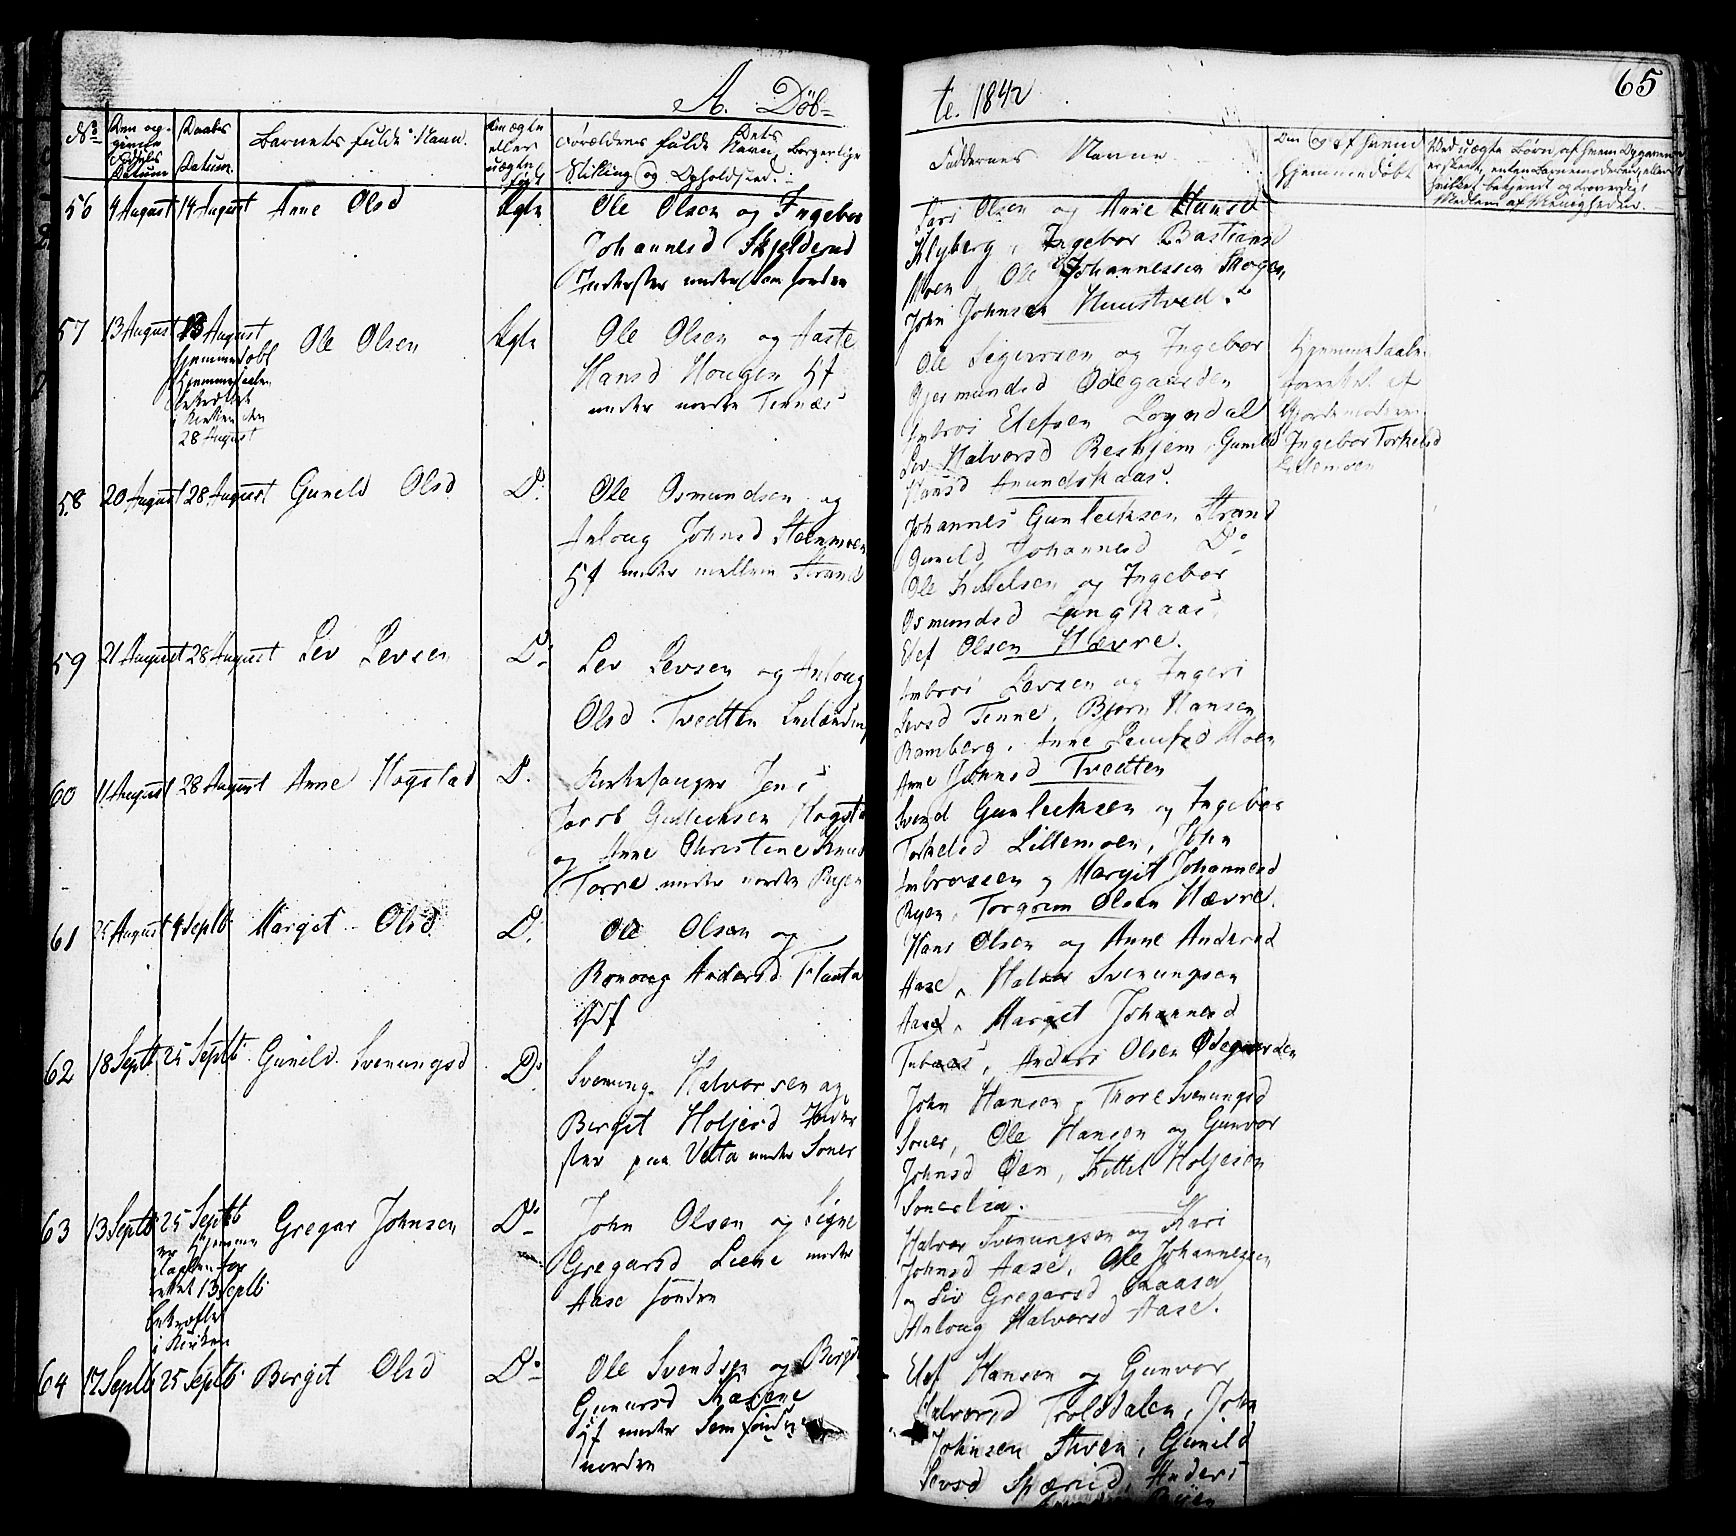 A. Døb-
te. 1842
65
No
Daabs
Datum
Barnets fulde Navn.
Forældrenes fulde Navn, Borgerlige
Stilling og Opholdsted.
Faddernes Navne
Hjemmedøbt
56 9 August 14 August Anne Olsd Ægte
Ole Olsen og Ingebor
Johannesd Skjelderud
Inderster under Sem søndre
Kari Olsen og Anne Hansd
Klyberg, Ingebor Bastiansd
Moen, Ole Johannessen Skogen
John Johnsen Muustved.
57 13 August 13 August Ole Olsen Ægte
Hjemmedøbt
Hjemmedaaben
bekræftet
i Kirken den
28 August
Ole Olsen og Aaste
Hansd Hougen Hf
under nordre Tennæs
Ole Sigursen og Ingebor
Gjermundsd Ødegaarden
Ambros Elefsen Logndal
Liv Halvorsd Beskjem, Gunild
Hansd Amundskaas.
Hjemmedaaben
forrettet af
Gjordemoderen
Ingebor Torkelsd
Lillemoen
58 20 August 28 August Gunild Olsd Do
Ole Osmundsen og
Anlaug Johnsd Steenmoen
Hf under mellem Strand
Johannes Gunleiksen Strand
Gunild Johannesd Do
Ole Kittelsen og Ingebor
Osmundsd Langkaas,
Elef Olsen Hævre.
59 21 August 28 August Lev Levsen Do
Lev Levsen og Anlaug
Olsd Tvedten
Ambros Levsen og Ingeri
Levsd Tenne, Bjørn Hansen
Ramberg, Anne Moen
Anne Johnsd Tvedten
60 11 August 28 August Anne Hogstad Do
Kirkesanger Jens
Jacob Gulleiksen Hogstad
og Anne Christine Knud
Torre under nordre Ryen
Svend Gunleiksen og Ingebor
Torkelsd Lillemoen, John
Ambrossen og Margit Johannesd
Ryen, Torgrim Olsen Hævre.
61 25 August 4 Septb Margit Olsd Do
Ole Olsen og
Ronoug Andersd Flaata
Hans Olsen og Anne Andersd
Aase, Halvor Svenungsen
Aase, Margit Johannesd
Tubaas, Anders Olsen Ødegaarden
62 18 Septb 25 Septb Gunild Svenungsd Do
Svenung Halvorsen og
Birgit Holjesd Inder
ster paa Vetta under Soner
John Hansen, Thore Svenungsd
Soner, Ole Hansen og Gunvor
Johnsd Øen, Kittil Holjesen
Sonerlia.
63 13 Septb 25 Septb Gregar Johnsen Do
er Hjemme
daaben for
rettet 13 Septb
bekræftet
i Kirken
John Olsen og Signe
Gregarsd Liene under
Aase søndre
Halvor Svenungsen og Kari
Johnsd Aase, Ole Johannessen
og Liv Gregarsd Kaasa
Anlaug Halvorsd Aase.
64 17 Septb 25 Septb Birgit Olsd Do
Ole Svendsen og Birgit
Gunnarsd Kasene
Hf under Sem søndre
nordre
Elef Hansen og Gunvor
Halvorsd Trolddalen, John
Johnsen Stiven, Gunild
Levsd Spærud, Anders